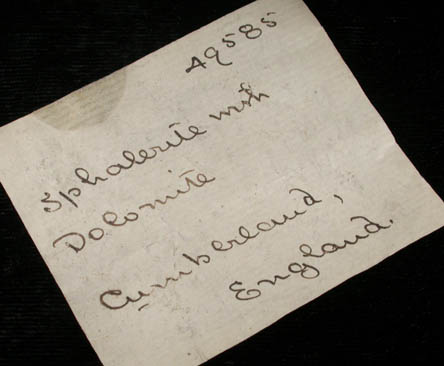 49585
Sphalerite with
Dolomite
Cumberland,
England.